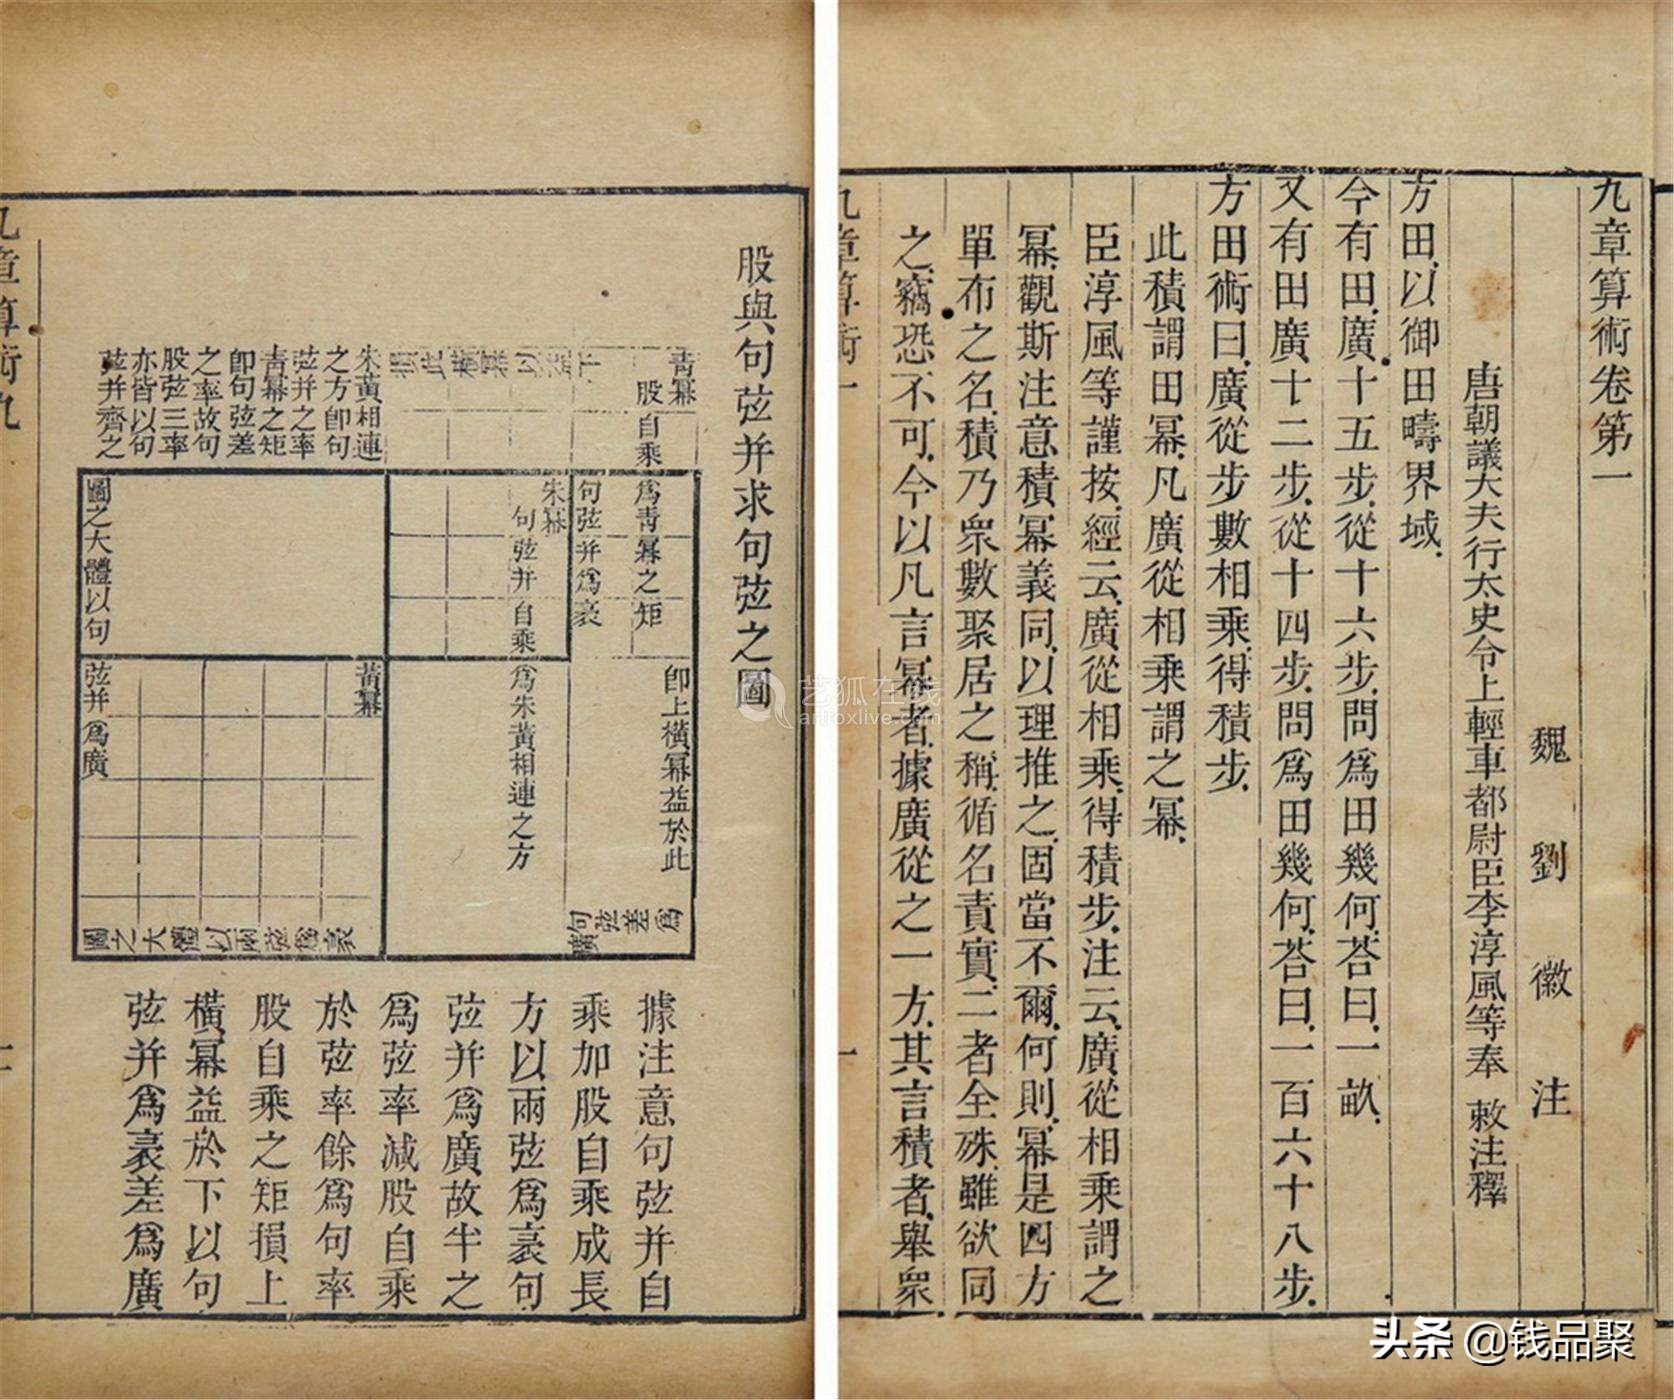 九章算術卷第一
魏劉徽注
唐朝議大夫行太史令上輕車都尉臣李淳風等奉 敕注釋
方田以御田疇界域
今有田廣十五步從十六步問爲田幾何荅曰一畝
又有田廣十二步從十四步問爲田幾何荅曰一百六十八步
方田術曰廣從步數相乘得積步
此積謂田冪凡廣從相乘謂之冪
臣淳風等謹按經云廣從相乘得積步注云廣從相乘謂之
冪觀斯注意積冪義同以理推之固當不爾何則冪是四方
單布之名積乃衆數聚居之稱循名責實二者全殊雖欲同
之竊恐不可今以凡言冪者據廣從之一方其言積者舉衆
九章算術一
一
股與句弦并求句弦之圖
青冪
股自乘
爲青冪之矩
卽上橫冪益於此
句弦并爲袤
朱冪
句弦并自乘
爲朱黃相連之方
句弦差爲廣
朱黃相連
之方卽句
弦并之率
青冪之矩
卽句弦差
之率故句
股弦三率
亦皆以句
弦并齊之
黃冪
圖之大體以句
弦并爲廣
圖之大體以兩弦爲袤
據注意句弦并自
乘加股自乘成長
方以兩弦爲袤句
弦并爲廣故半之
爲弦率減股自乘
於弦率餘爲句率
股自乘之矩損上
橫冪益於下以句
弦并爲袤差爲廣
九章算術九
艺狐在线
artfoxlive.com
头条 @钱品聚